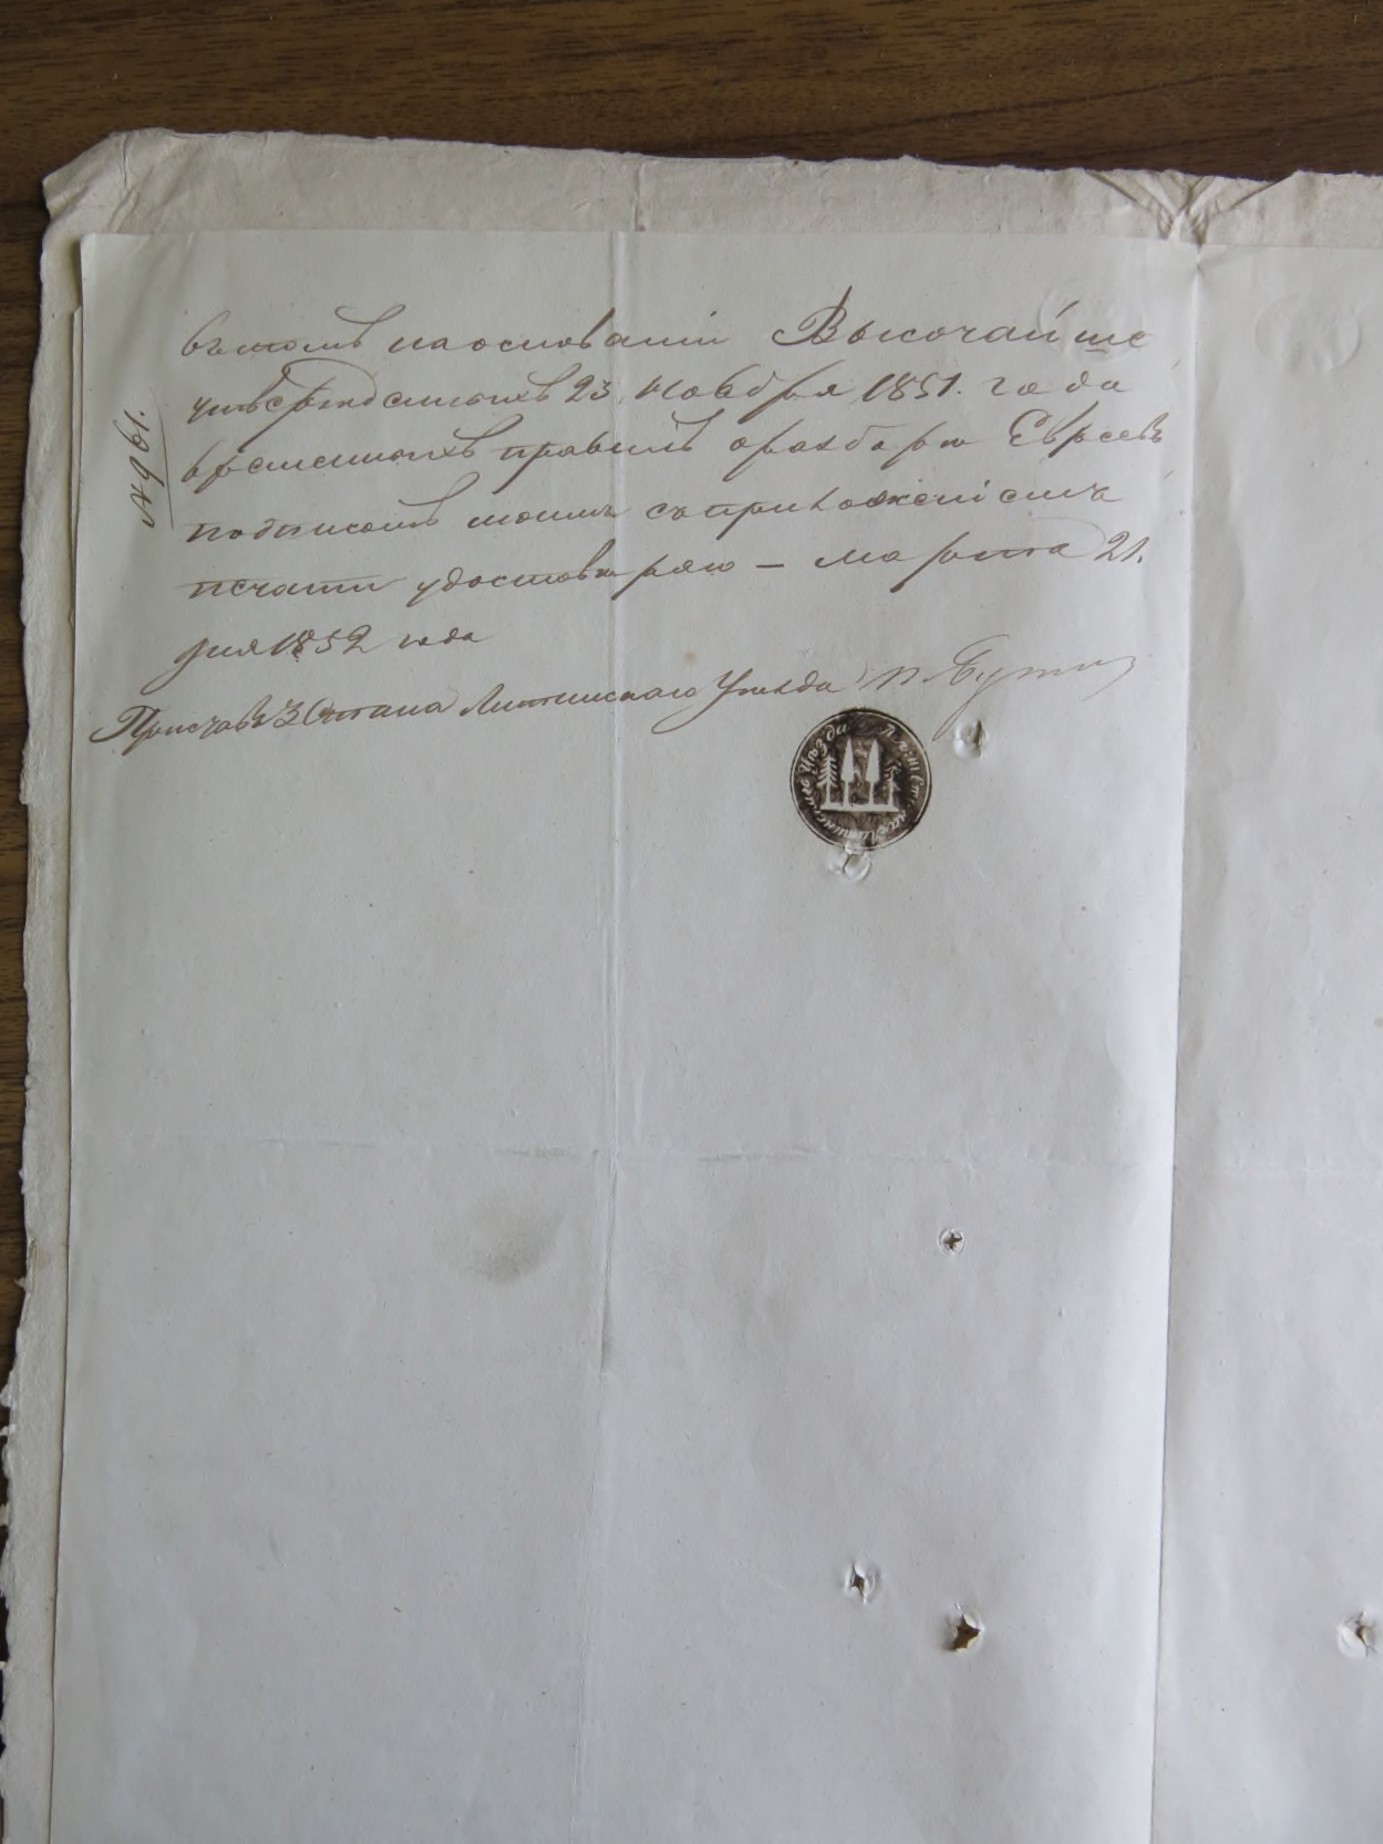 въ томъ на основаніи Высочайше
утвержденныхъ 23. Ноября 1851. года
временныхъ правилъ о разборѣ Евреевъ
подписомъ моимъ съ приложеніемъ
печати удостовѣряю — марта 21.
дня 1852 года
Приставъ 3 Стана Литинскаго Уѣзда
№ 961.